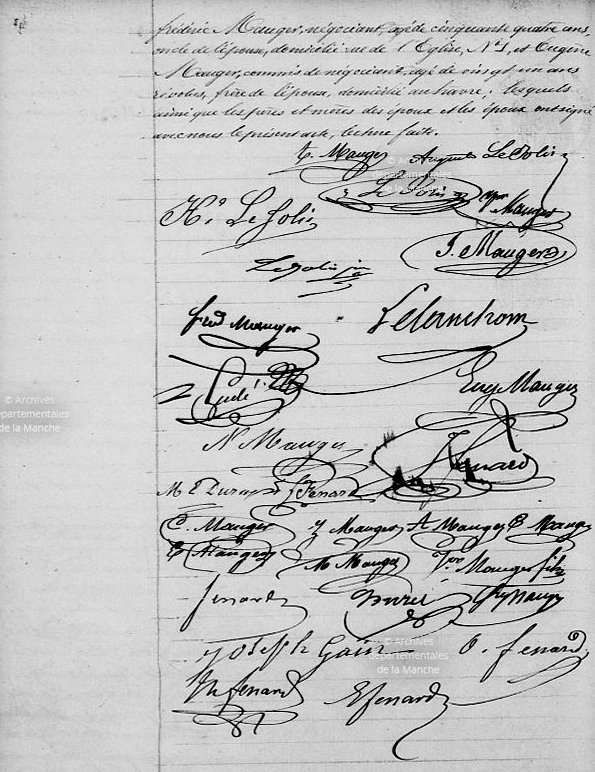 frédéric Mauger, négociant, agé de cinquante quatre ans,
oncle de l'épouse, domicilié rue de l'Eglise, N° 1, et Eugène
Mauger, commis de négociant, agé de vingt un ans
révolus, frère de l'épouse, domicilié au havre; lesquels
ainsi que les pères et mères des époux et les époux ont signé
avec nous le présent acte, lecture faite.
A. Mauger Auguste LeJolis
Le Jolis
Mauger
Ho. LeJolis
J. Mauger
LeJolis jne
fred Mauger
Eug Mauger
N. Mauger
fenard
M E fenard
C. Mauger J Mauger A Mauger B Mauger
E Mauger M Mauger Mauger fils
fenard Mauger
Joseph Gain O. fenard
fenard E fenard
© Archives
départementales
de la Manche
© Archives
départementales
de la Manche
© Archives
départementales
de la Manche